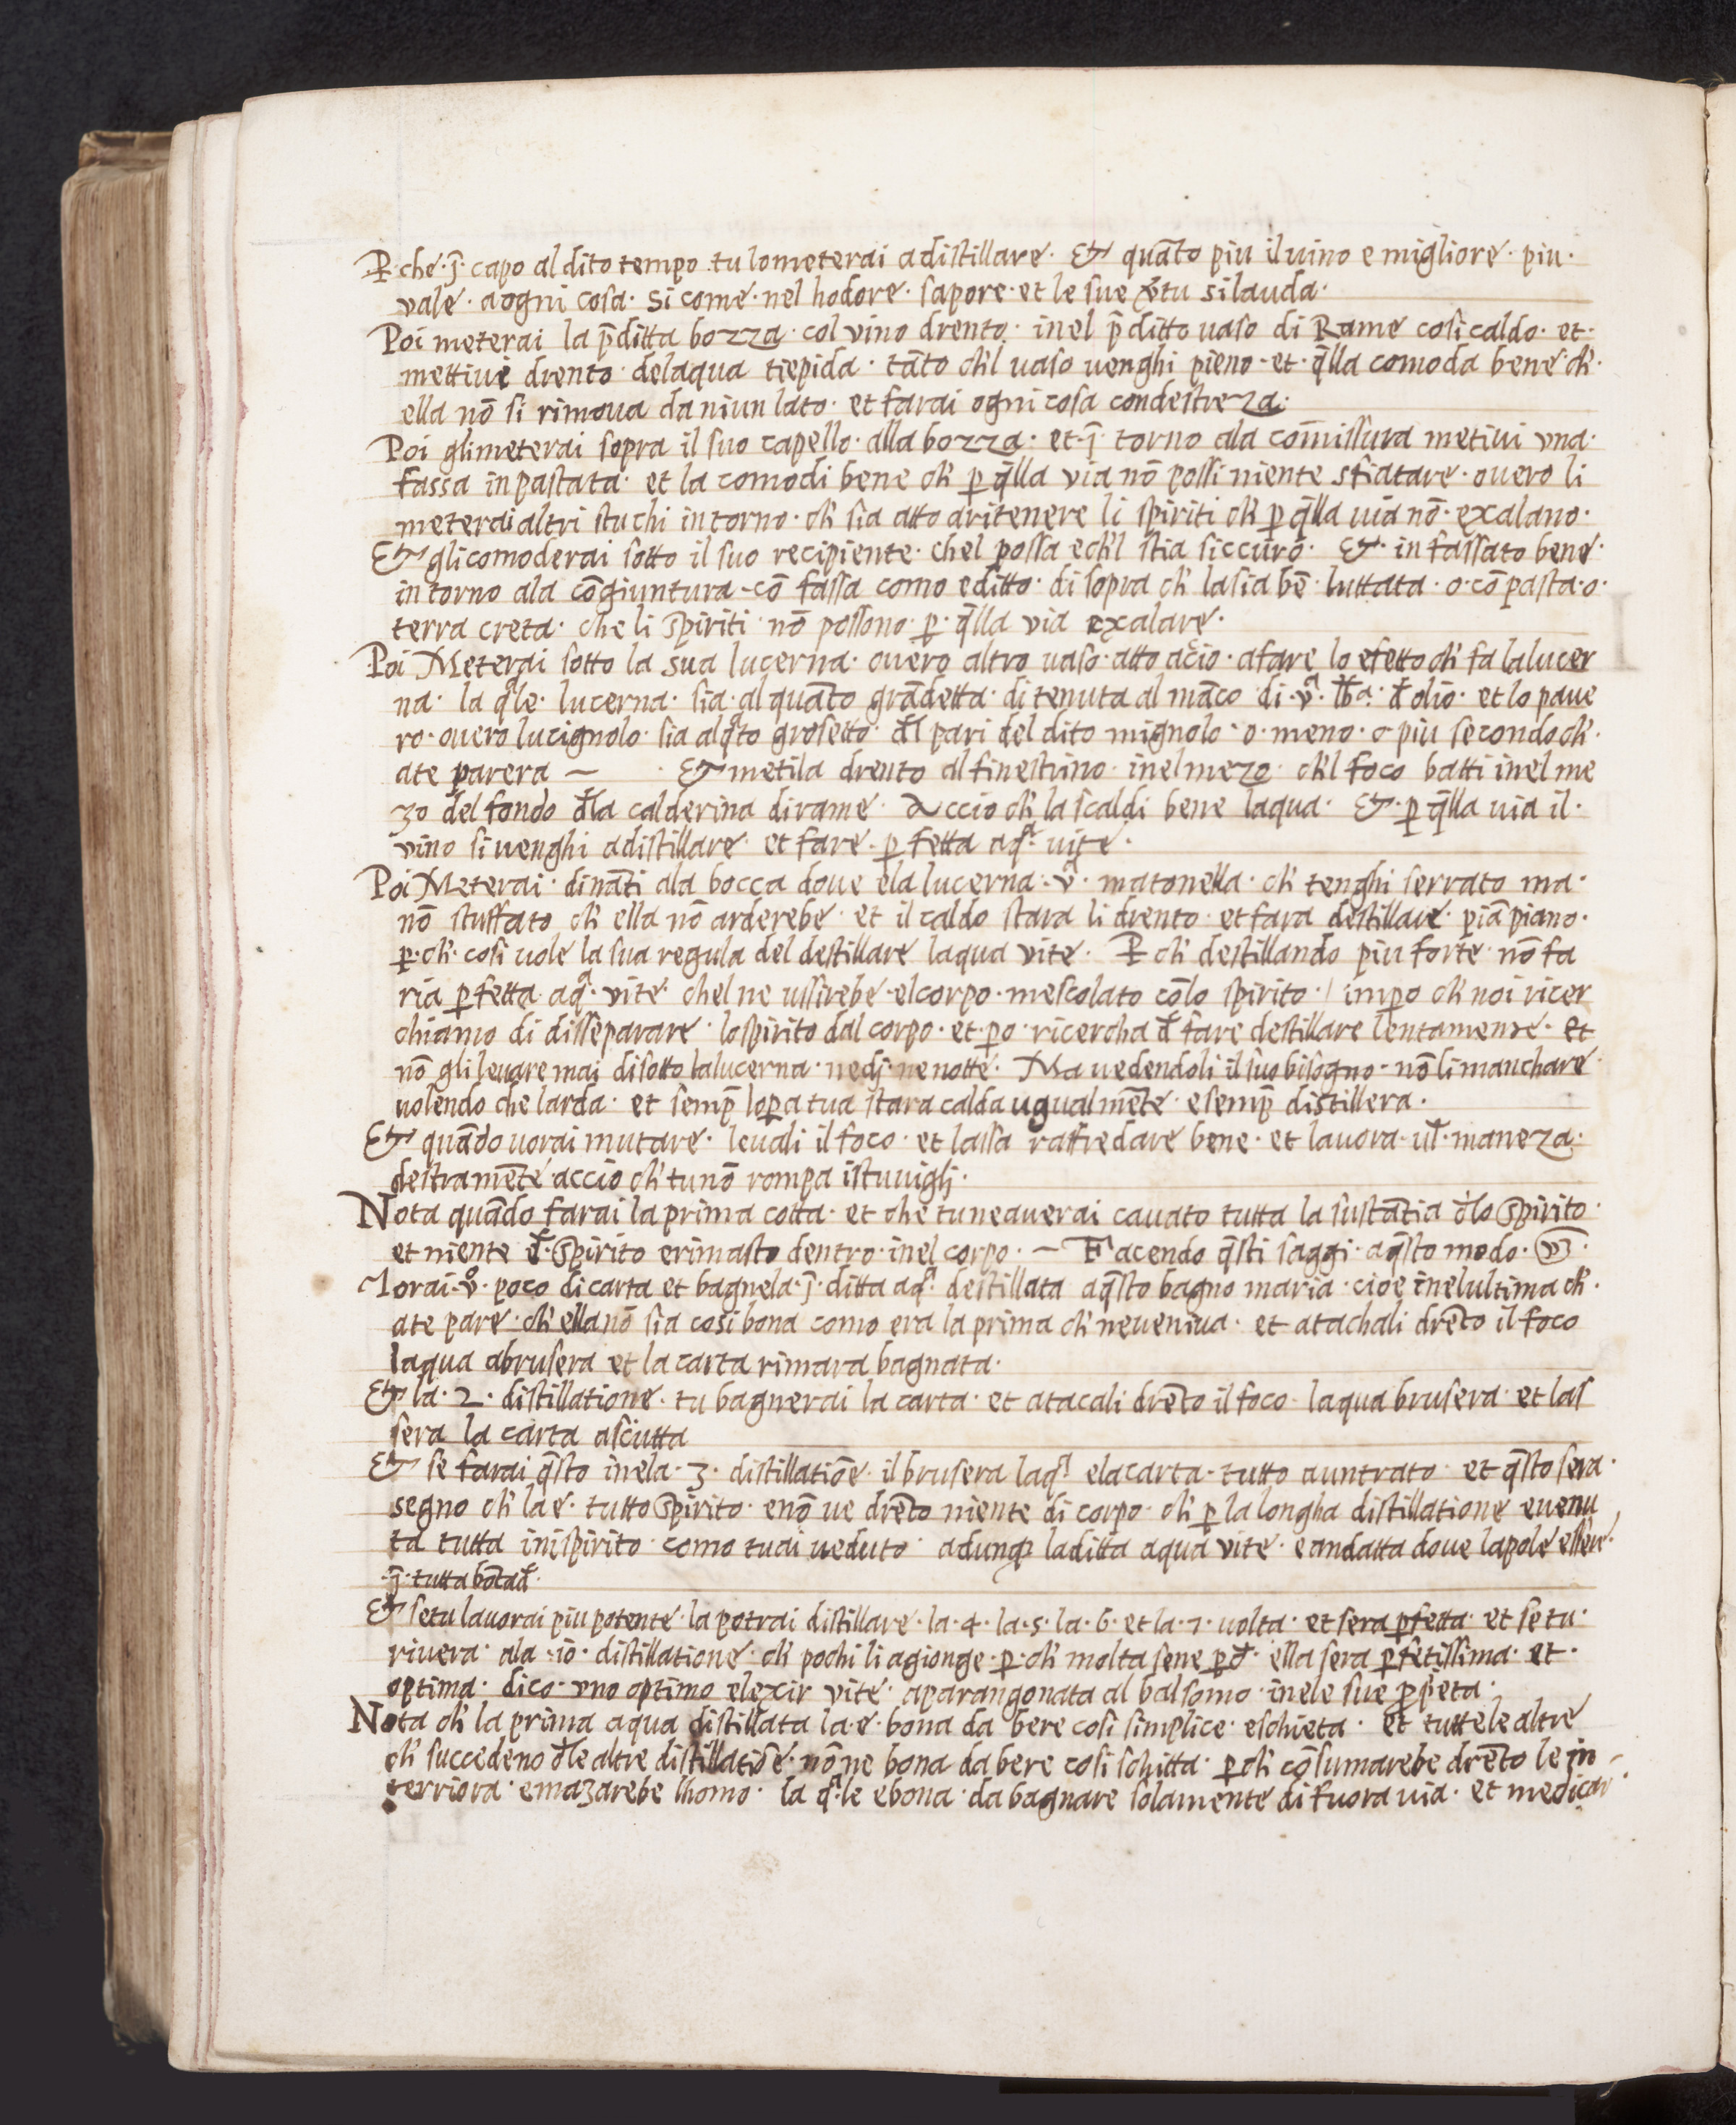 P̱ che· ȷ̄· capo al dito tempo tu lo meterai a distillare· Et quāto piu il uino e migliore· piu·
vale· a ogni cosa· si come· nel hodore· sapore· et le sue v̄tu si lauda·
Poi meterai la p̄ditta bozza· col vino drento· inel p̄ditto uaso di Rame cosi caldo· et·
mettiui drento· delaqua tiepida· tāto ch'l uaso uenghi pieno· et· q̄lla comoda bene· ch'·
ella nō si rimoua da niun lato· et farai ogni cosa con destreza·
Poi gli meterai sopra il suo capello· alla bozza· et· ȷ̄· torno ala com̄issura metiui vna·
fassa inpastata· et la comodi bene ch' ꝑ q̄lla via nō possi niente sfiatare· ouero li
meterai altri stuchi intorno· ch' sia atto a ritenere li spiriti ch' ꝑ q̄lla uia nō· exalano·
Et gli comoderai sotto il suo recipiente· chel possa e ch'l stia siccurō· Et· infassato bene·
intorno ala cōgiuntura· cō fassa como e ditto· di sopra ch' la sia bē· luttata· o· cō pasta· o·
terra creta· che li spiriti· nō possono· ꝑ· q̄lla via exalare·
Poi Meterai sotto la sua lucerna· ouero altro uaso· atto a cio· a fare lo efetto ch' fa la lucer
na· la qͣle· lucerna· sia· al quāto grādetta· di tenuta al māco di· vͣ· lƀa· đ olio· et lo paue
ro· ouero lucignolo· sia alqͣto grosetto· đl pari del dito mignolo· o· meno· o piu secondo ch'·
a te parera — · Et metila drento al finestrino· inel mezo· ch'l foco batti inel me
zo del fondo đla calderina di rame· Accio ch' la scaldi bene laqua· Et· ꝑ q̄lla uia il·
vino si uenghi a distillare· et fare· ꝑfetta aqͣ· uite·
Poi Meterai· dināti ala bocca doue e la lucerna· vͣ· matonella· ch' tenghi serrato ma·
nō stuffato ch' ella nō arderebe· et il caldo stara li drento· et fara destillare· piā piano·
ꝑ· ch'· cosi uole la sua regula del destillare laqua vite· P̱ ch' destillando piu forte· nō fa
ria ꝑfetta· aqͣ· vite· chel ne ussirebe· el corpo· mescolato cō lo spirito· / imꝑo ch' noi ricer
chiamo di disseparare· lo spirito dal corpo· et· ꝑo· ricercha đ fare destillare lentamente· et
nō gli leuare mai di sotto la lucerna· ne dj· ne notte· Ma uedendoli il suo bisogno· nō li manchare·
uolendo che larda· et semp̄ loꝑa tua stara calda ugualmēte· e semp̄ distillera·
Et quādo uorai mutare· leuali il foco· et lassa raffredare bene· et lauora· uł· maneza·
destramēte· accio ch' tu nō rompa i stuuiglj·
Nota quādo farai la prima cotta· et che tu ne auerai cauato tutta la sustātia đlo spirito·
et niente đ· spirito e rimasto dentro· inel corpo· — Facendo q̄sti saggi· a q̄sto modo· v3·
Torai· vͦ· poco di carta et bagnela· ȷ̄· ditta aqͣ· destillata a q̄sto bagno maria· cioe inel ultima ch'·
a te pare· ch' ella nō sia cosi bona como era la prima ch' ne ueniua· et atachali drēto il foco
laqua abrusera et la carta rimara bagnata·
Et la· 2· distillatione· tu bagnerai la carta· et atacali drēto il foco· laqua brusera· et las
sera la carta asciutta
Et se farai q̄sto inela· 3· distillatiōe· il brusera laqͣ e la carta· tutto a un trato· et q̄sto sera·
segno ch' la e· tutto spirito· e nō ue drēto niente di corpo· ch' ꝑ la longha distillatione e uenu
ta tutta inispirito· como tu ai ueduto· adunqȝ la ditta aqua vite· e andatta doue la pole essere·
·ȷ̄· tutta bōtađ·
Et se tu lauorai piu potente· la potrai distillare· la· 4· la· 5· la· 6· et la· 7· uolta· et sera ꝑfetta· et se tu·
riuera· ala· 10· distillatione· ch' pochi li agionge· ꝑ· ch' molta se ne ꝑđ· ella sera ꝑfetissima· et·
optima· dico· vno optimo elexir vite· aparangonata al balsomo· inele sue ꝓpieta·
Nota ch' la prima aqua distillata la· e· bona da bere cosi simplice· e schieta· et tutte le altre
ch' succedeno đle altre distillatiōe· nō ne bona da bere cosi schitta· ꝑ ch' cōsumarebe drēto le in-
terriora· e mazarebe lhomo· la qͣle e bona· da bagnare solamente di fuora uia· et medicar·